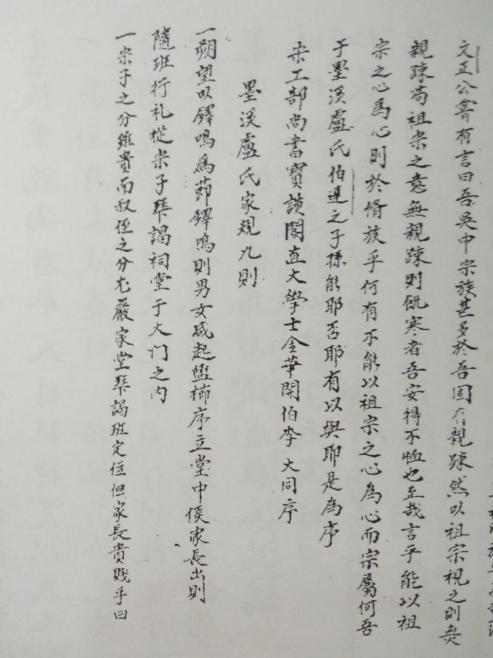 文正公嘗有言曰吾吳中宗族甚多於吾固有親踈然以祖宗視之則無
親踈苟祖宗之意無親踈則飢寒者吾安得不恤也至哉言乎能以祖
宗之心為心則於惰族乎何有不能以祖宗之心為心而宗屬何吾
于墨溪盧氏伯達之子孫能耶否耶有以與耶是為序
宋工部尚書寶謨閣直大學士金華開伯李大同序
墨溪盧氏家規九則
一朔望以鐸鳴為節鐸鳴則男女咸起盥櫛序立堂中俟家長出則
隨班行礼從宗子拜謁祠堂于大门之内
一宗子之分雖貴而叔侄之分尤嚴家堂拜謁班定位但家長貴賤乎曰